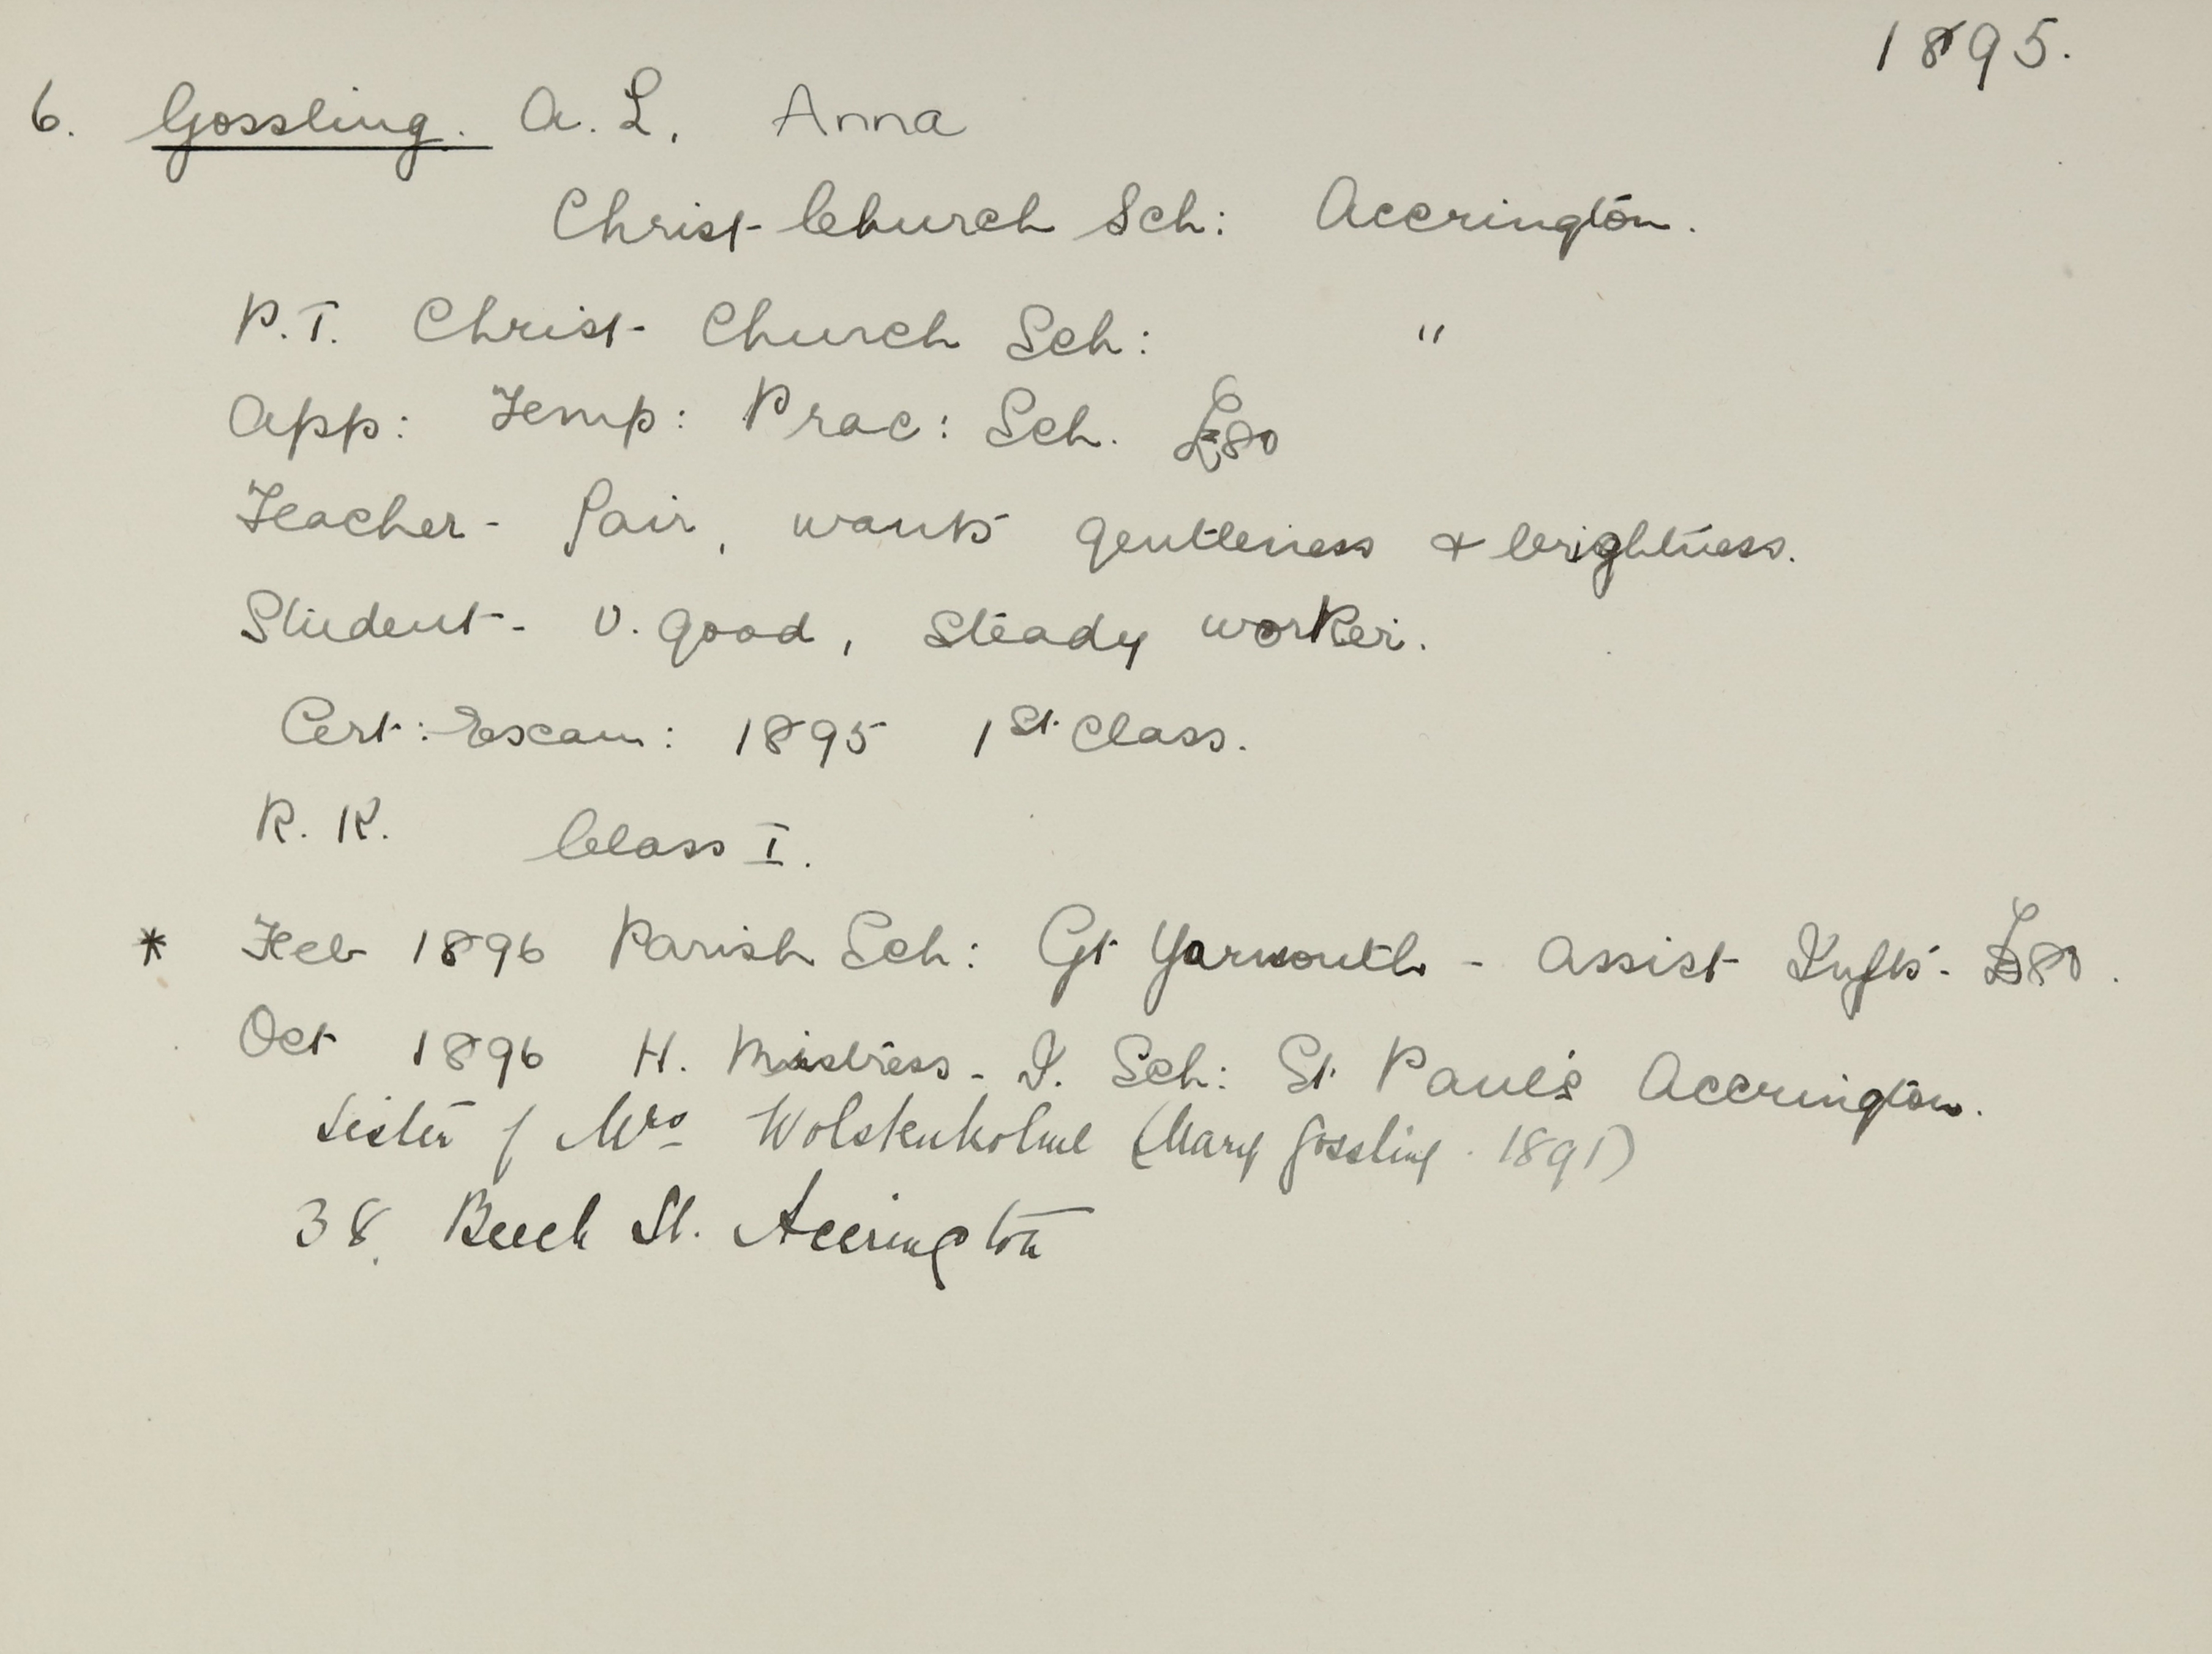 1895.
6. Gossling. A. L. Anna
Christ Church Sch: Accrington.
P.T. Christ Church Sch: "
App: Temp: Prac: Sch. £80
Teacher - fair, wants gentleness & brightness.
Student - v. good, steady worker.
Cert: Exam: 1895 1st Class.
R. K. Class I.
* Feb 1896 Parish Sch: Gt Yarmouth - Assist Infts - £80.
Oct 1896 H. Mistress - I. Sch: St Paul's Accrington.
Sister of Mrs Wolstenholme (Mary Gossling. 1891)
38. Beech St. Accrington